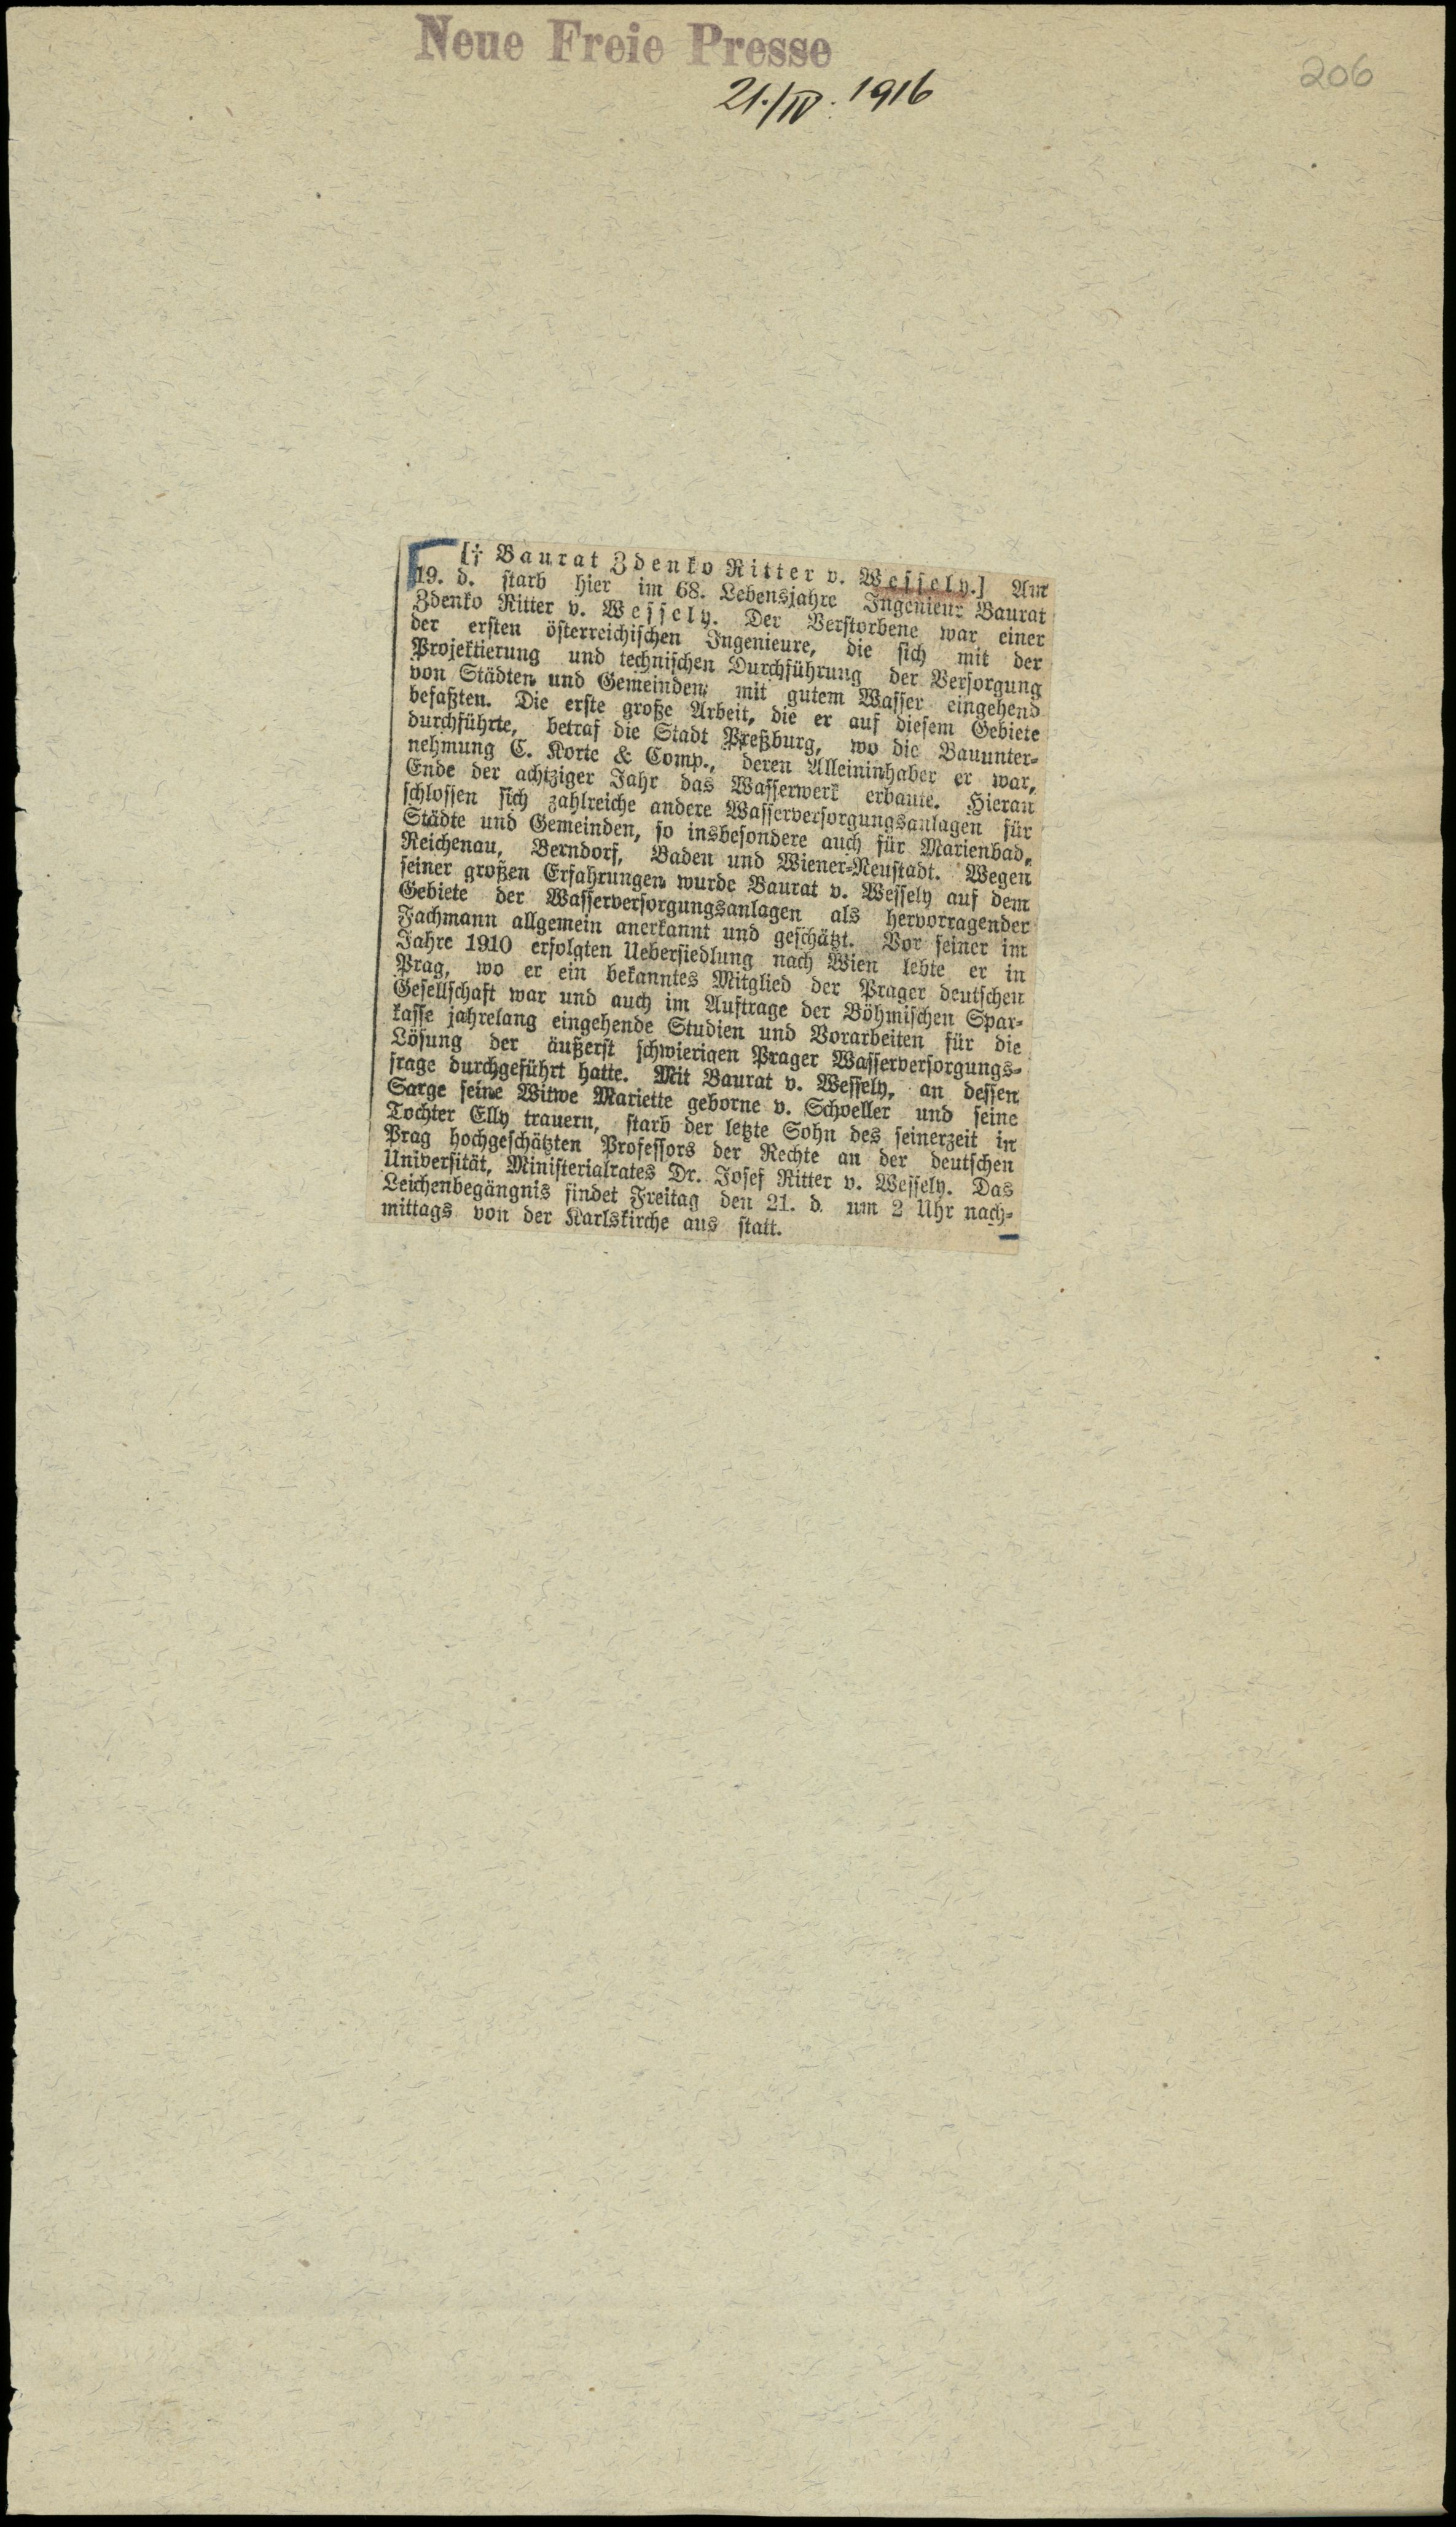 Neue Freie Presse
21./IV. 1916
206
[† Baurat Zdenko Ritter v. Wessely.] Am
19. d. starb hier im 68. Lebensjahre Ingenieur Baurat
Zdenko Ritter v. Wessely. Der Verstorbene war einer
der ersten österreichischen Ingenieure, die sich mit der
Projektierung und technischen Durchführung der Versorgung
von Städten und Gemeinden mit gutem Wasser eingehend
befaßten. Die erste große Arbeit, die er auf diesem Gebiete
durchführte, betraf die Stadt Preßburg, wo die Bauunter-
nehmung C. Korte & Comp., deren Alleininhaber er war,
Ende der achtziger Jahr das Wasserwerk erbaute. Hieran
schlossen sich zahlreiche andere Wasserversorgungsanlagen für
Städte und Gemeinden, so insbesondere auch für Marienbad,
Reichenau, Berndorf, Baden und Wiener-Neustadt. Wegen
seiner großen Erfahrungen wurde Baurat v. Wessely auf dem
Gebiete der Wasserversorgungsanlagen als hervorragender
Fachmann allgemein anerkannt und geschätzt. Vor seiner im
Jahre 1910 erfolgten Uebersiedlung nach Wien lebte er in
Prag, wo er ein bekanntes Mitglied der Prager deutschen
Gesellschaft war und auch im Auftrage der Böhmischen Spar-
kasse jahrelang eingehende Studien und Vorarbeiten für die
Lösung der äußerst schwierigen Prager Wasserversorgungs-
frage durchgeführt hatte. Mit Baurat v. Wessely, an dessen
Sarge seine Witwe Mariette geborne v. Schoeller und seine
Tochter Elly trauern, starb der letzte Sohn des seinerzeit in
Prag hochgeschätzten Professors der Rechte an der deutschen
Universität, Ministerialrates Dr. Josef Ritter v. Wessely. Das
Leichenbegängnis findet Freitag den 21. d. um 2 Uhr nach-
mittags von der Karlskirche aus statt.